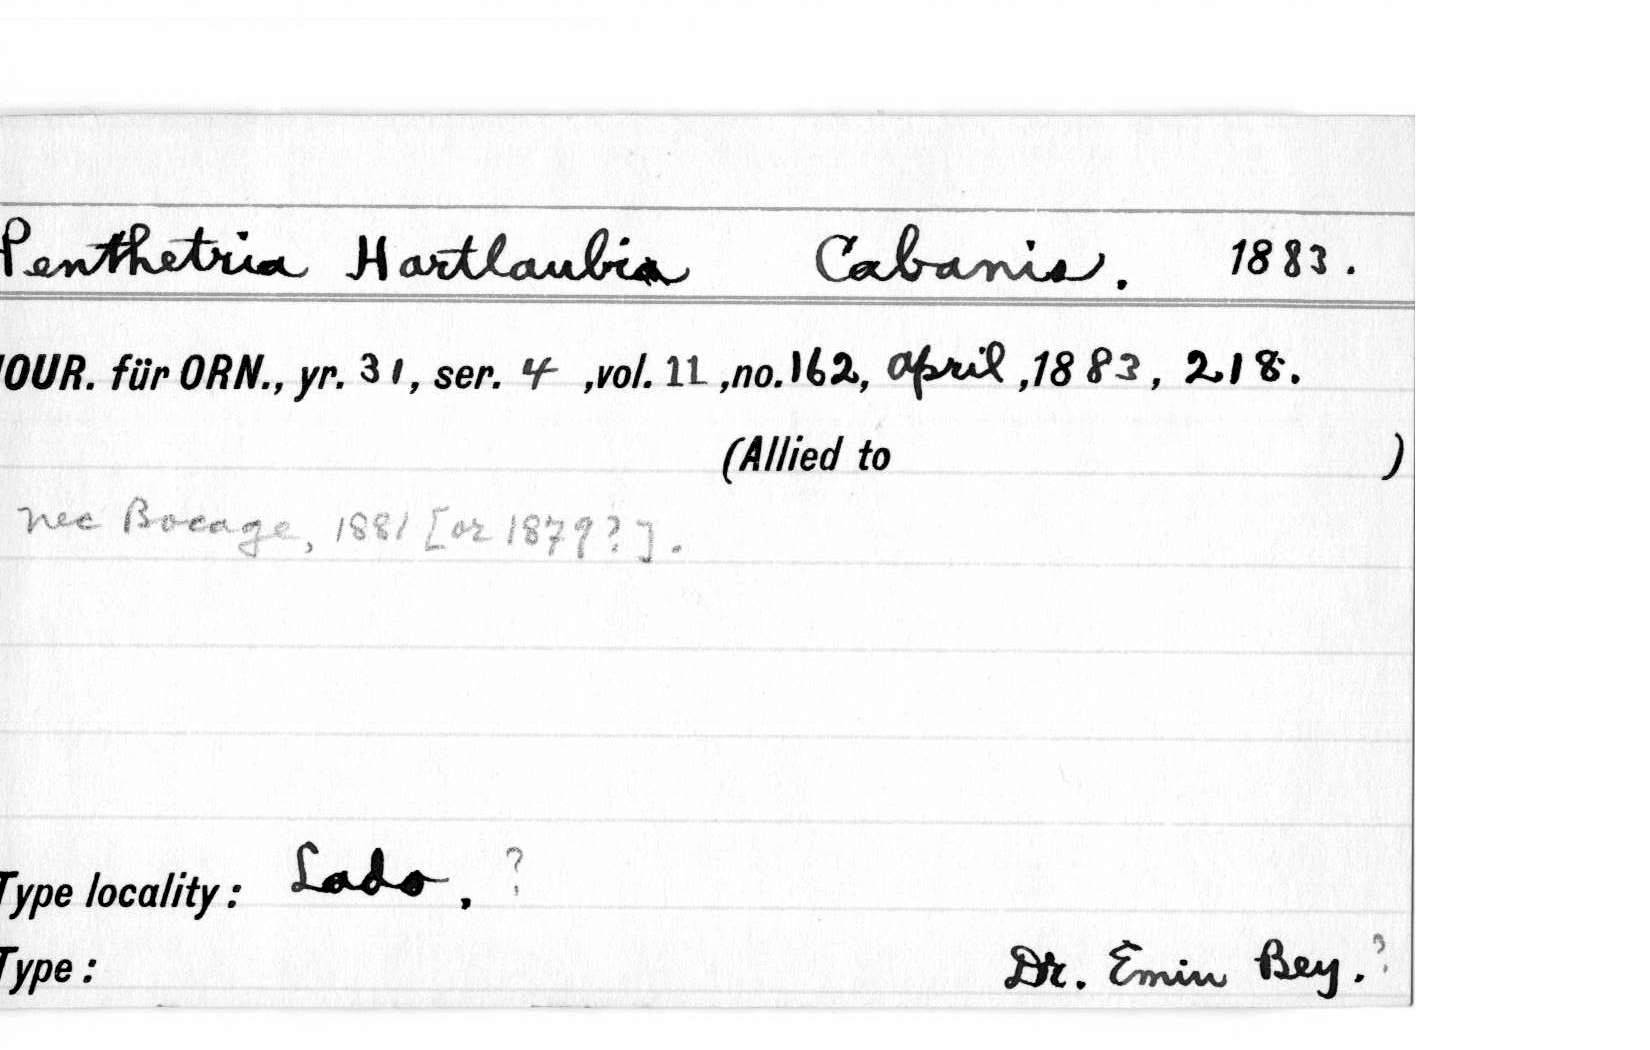 Penthetria Hartlaubia Cabanis. 1883.
JOUR. für ORN., yr. 31, ser. 4 ,vol. 11 ,no. 162, april ,1883, 218.
(Allied to )
nec Bocage, 1881 [or 1879?].
Type locality: Lado. ?
Type: Dr. Emin Bey. ?